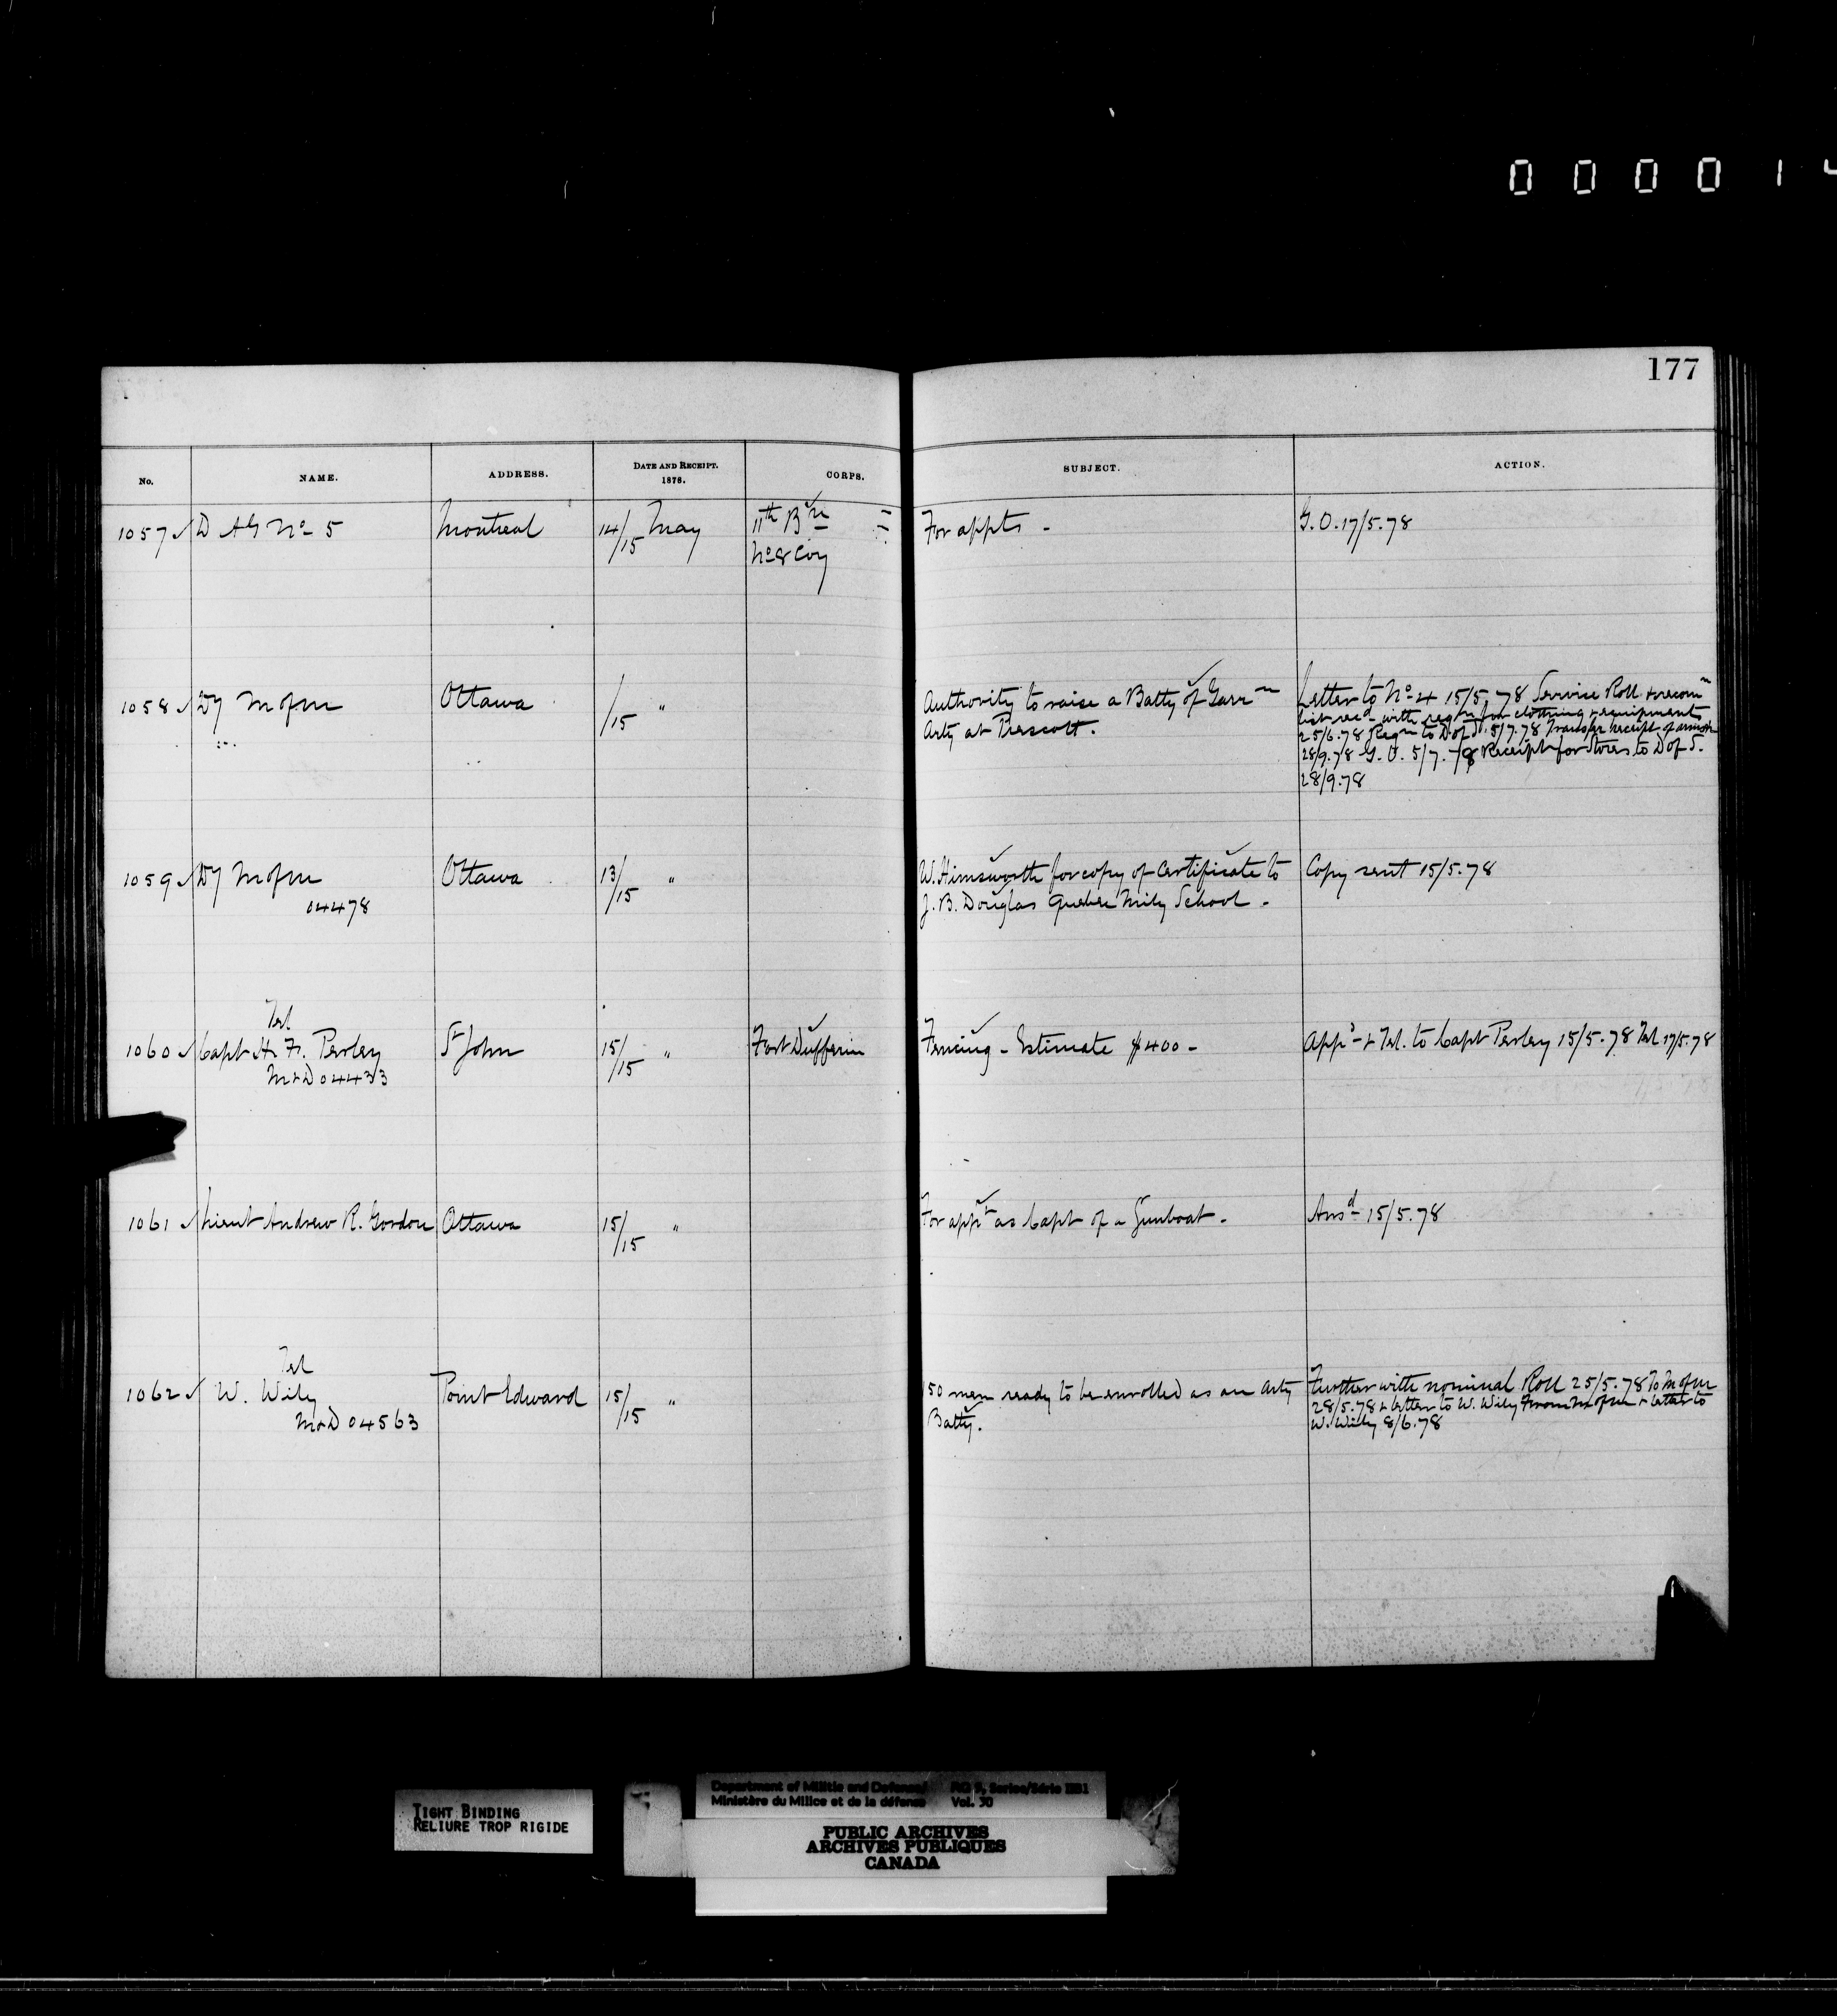 0 0 0 0 1 4
177
No. NAME. ADDRESS. DATE AND RECEIPT. 1878. CORPS. SUBJECT. ACTION.
1057 ✓ D A G No 5 Montreal 14/15 May 11th Bn For appts - G.O. 17/5.78
No 8 Coy
1058 ✓ Dy M of M Ottawa /15 " Authority to raise a Batty of Garrn Letter to No 4 15/5.78 Service Roll & recomn
Arty at Prescott. list recd with reqn for clothing & equipments
25/6.78 Reqn to D of S 5/7.78 Transfer receipt of
28/9.78 G.O. 5/7.78 Receipt for Stores to D of S.
28/9.78
1059 ✓ Dy M of M Ottawa 13/15 " W. Himsworth for copy of Certificate to Copy sent 15/5.78
04478 J. B. Douglas Quebec Mily School -
Tel
1060 ✓ Capt H. F. Perley St John 15/15 " Fort Dufferin Fencing - Estimate $400 - Appd & Tel. to Capt Perley 15/5.78 Tel 17/5.78
M&D 04433
1061 ✓ Lieut Andrew R. Gordon Ottawa 15/15 " For appt as Capt of a Gunboat - Ansd 15/5.78
Tel
1062 ✓ W. Wily Point Edward 15/15 " 150 men ready to be enrolled as an Arty Further with nominal Roll 25/5.78 To M of M
M&D 04563 Batty. 28/5.78 & letter to W. Wily From M of M & letter to
W. Wily 8/6.78
TIGHT BINDING
RELIURE TROP RIGIDE
Department of Militia and Defence/ RG 9, Series/Série IIB1
Ministère du Milice et de la défense Vol. 30
PUBLIC ARCHIVES
ARCHIVES PUBLIQUES
CANADA